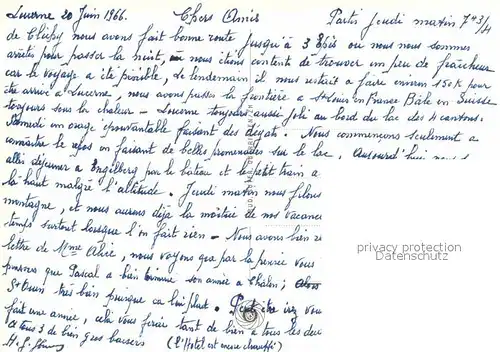 Lucerne 20 Juin 1966. Chers Amis Partis Jeudi matin 7H 3/4
de Clichy nous avons fait bonne route jusqu'à 3 Épis où nous nous sommes
arrêtés pour passer la nuit, nous étions contents de trouver un peu de fraîcheur
car le voyage a été pénible, le lendemain il nous restait à faire environ 150K pour
être arrivé à Lucerne, nous avons passés la frontière à St Louis en France Bâle en Suisse
toujours sous la chaleur - Lucerne toujours aussi joli au bord du lac des 4 cantons.
Samedi un orage épouvantable faisant des dégats. Nous commençons seulement a
connaître le repos en faisant de belles promenades sur le lac. Aujourd'hui nous
allé déjeuner a Engelberg par le bateau et le petit train a
là-haut malgré l'altitude. Jeudi matin nous filons
montagne, et nous aurons déjà la moitié de nos vacances
temps surtout lorsque l'on fait rien - Nous avons bien re
lettre de Mme Alice, nous voyons que par la pensée vous
pensons que Pascal a bien terminé son année a Chalon; alors
St Ouen très bien puisque ca lui plait. Peut être irez vous
fait une année, cela vous ferait tant de bien à tous les deux
à tous 3 de bien gros baisers (l'Hotel est même chauffé)
privacy protection
www.delcampe.net